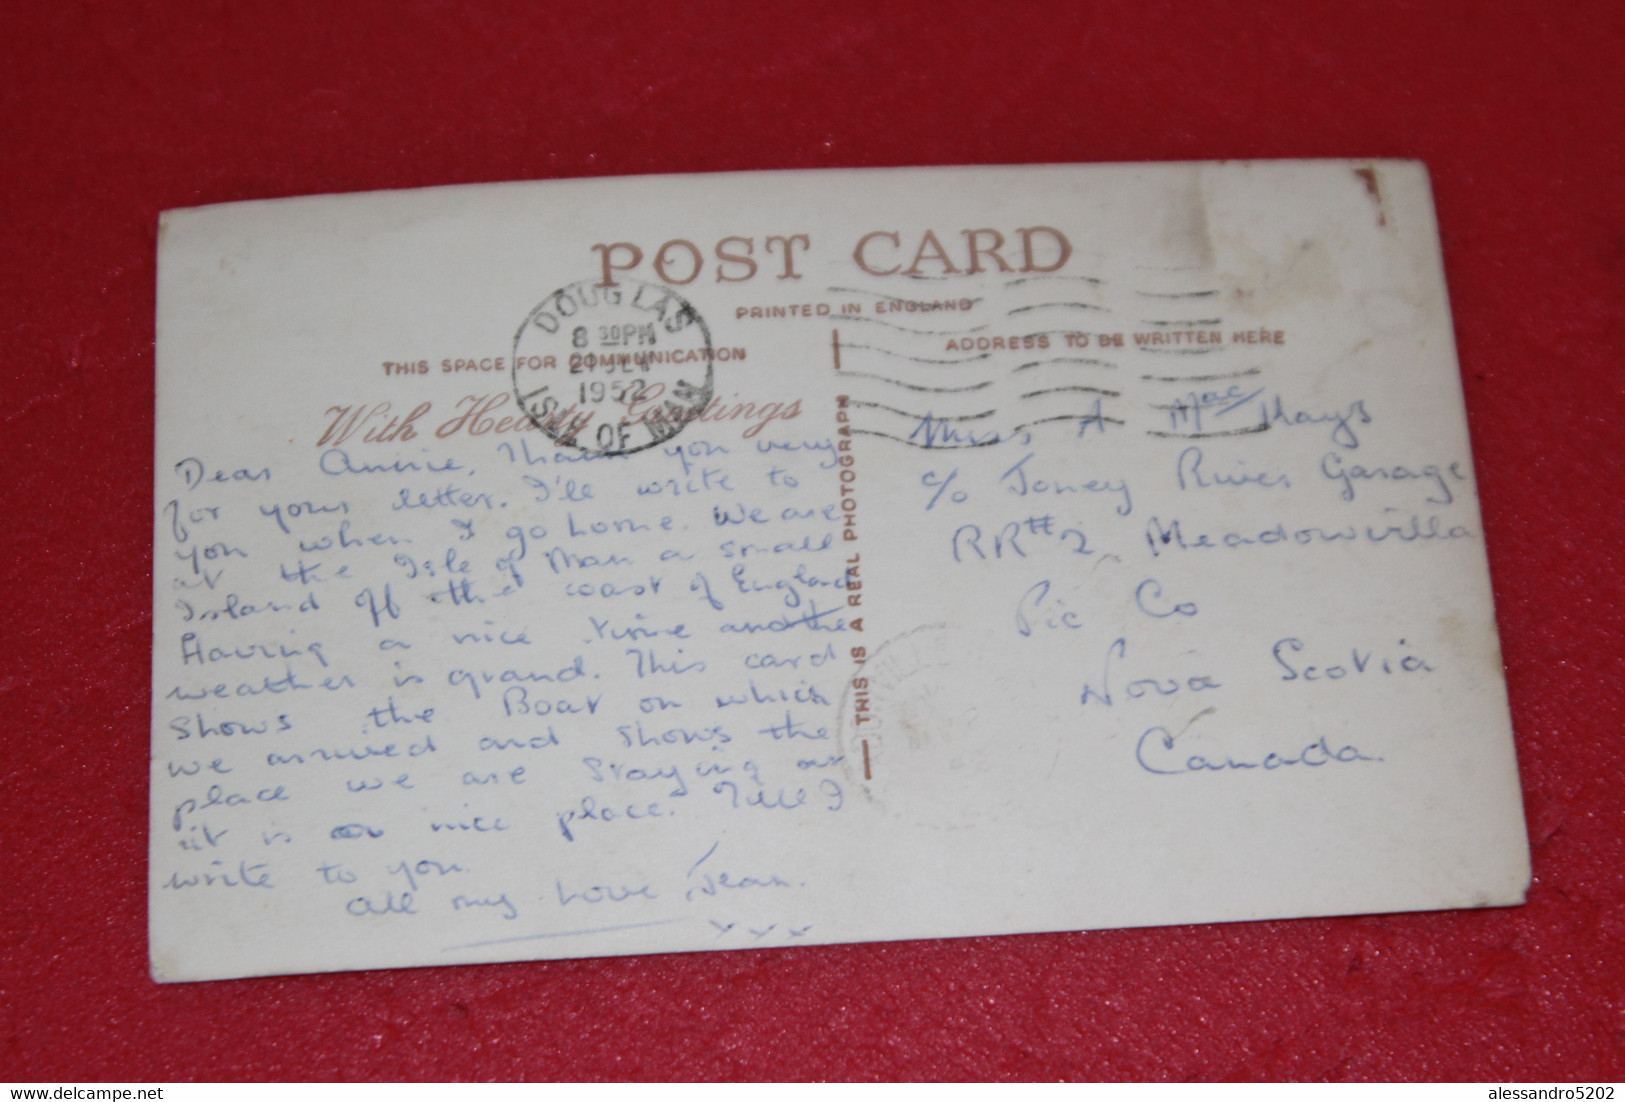 POST CARD
PRINTED IN ENGLAND
THIS SPACE FOR COMMUNICATION
ADDRESS TO BE WRITTEN HERE
With Hearty Greetings
DOUGLAS
8 30PM
1952
ISLE OF MAN
Dear Annie, Thank you very
for your letter. I'll write to
you when I go home. We are
at the Isle of Man a small
Island off the coast of England
Having a nice time and the
weather is grand. This card
shows the Boat on which
we arrived and shows the
place we are staying at
it is a nice place. Till I
write to you.
All my Love Jean.
x x x
THIS IS A REAL PHOTOGRAPH
Miss A Mac Kays
c/o Toney River Garage
RR#2 Meadowvilla
Pic Co
Nova Scotia
Canada.
alessandro5202